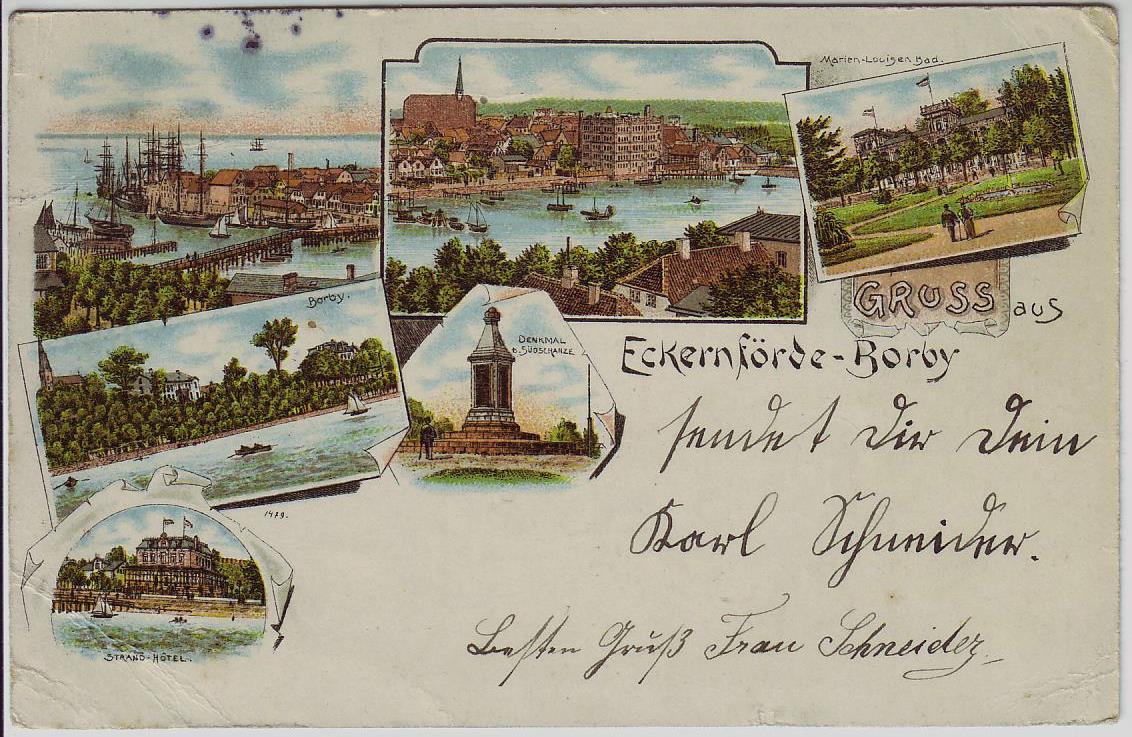 Marien-Louisen Bad.
GRUSS aus
Eckernförde-Borby
Borby.
DENKMAL
b. SÜDSCHANZE.
1479.
STRAND-HOTEL.
sendet Dir Dein
Karl Schneider.
Besten Gruß Frau Schneider